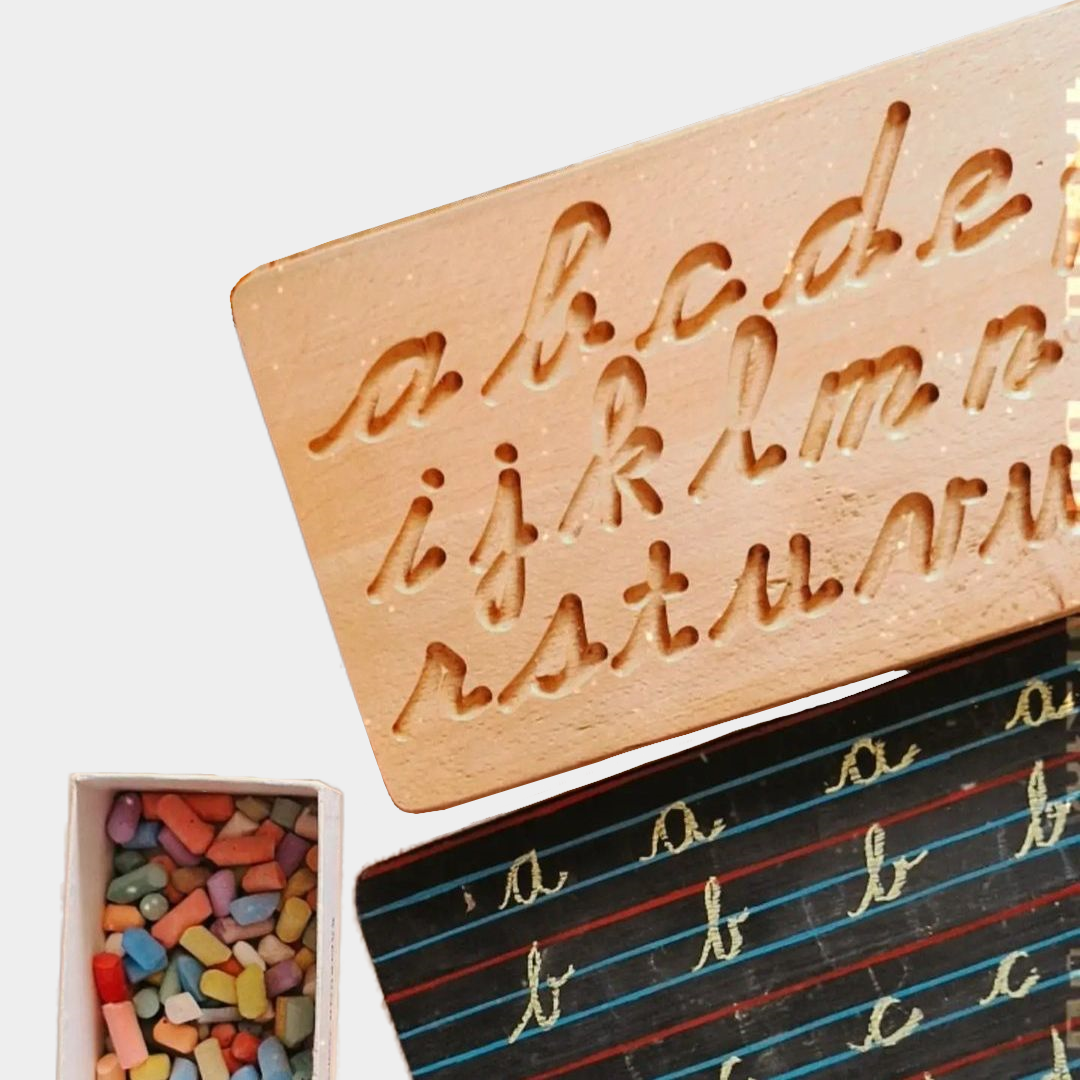 a b c d e
i j k l m n
r s t u v
a a a a
b b b b
c c